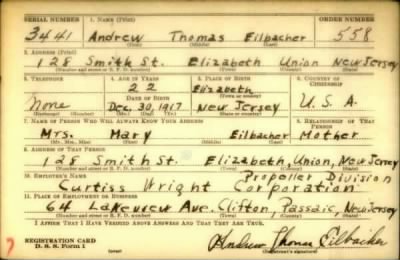 SERIAL NUMBER 1. NAME (Print) ORDER NUMBER
3441 Andrew Thomas Eilbacher 558
(First) (Middle) (Last)
2. ADDRESS (Print)
128 Smith St. Elizabeth Union New Jersey
(Number and street or R. F. D. number) (Town) (County) (State)
3. TELEPHONE 4. AGE IN YEARS 5. PLACE OF BIRTH 6. COUNTRY OF CITIZENSHIP
22 Elizabeth
DATE OF BIRTH (Town or county)
None Dec. 30, 1917 New Jersey U. S. A.
(Exchange) (Number) (Mo.) (Day) (Yr.) (State or country)
7. NAME OF PERSON WHO WILL ALWAYS KNOW YOUR ADDRESS 8. RELATIONSHIP OF THAT PERSON
Mrs. Mary Eilbacher Mother
(Mr., Mrs., Miss) (First) (Middle) (Last)
9. ADDRESS OF THAT PERSON
128 Smith St. Elizabeth, Union, New Jersey
(Number and street or R. F. D. number) (Town) (County) (State)
10. EMPLOYER'S NAME Propeller Division
Curtiss Wright Corporation
11. PLACE OF EMPLOYMENT OR BUSINESS
64 Lakeview Ave. Clifton, Passaic, New Jersey
(Number and street or R. F. D. number) (Town) (County) (State)
I AFFIRM THAT I HAVE VERIFIED ABOVE ANSWERS AND THAT THEY ARE TRUE.
REGISTRATION CARD
D. S. S. Form 1
Andrew Thomas Eilbacher
(Registrant's signature)